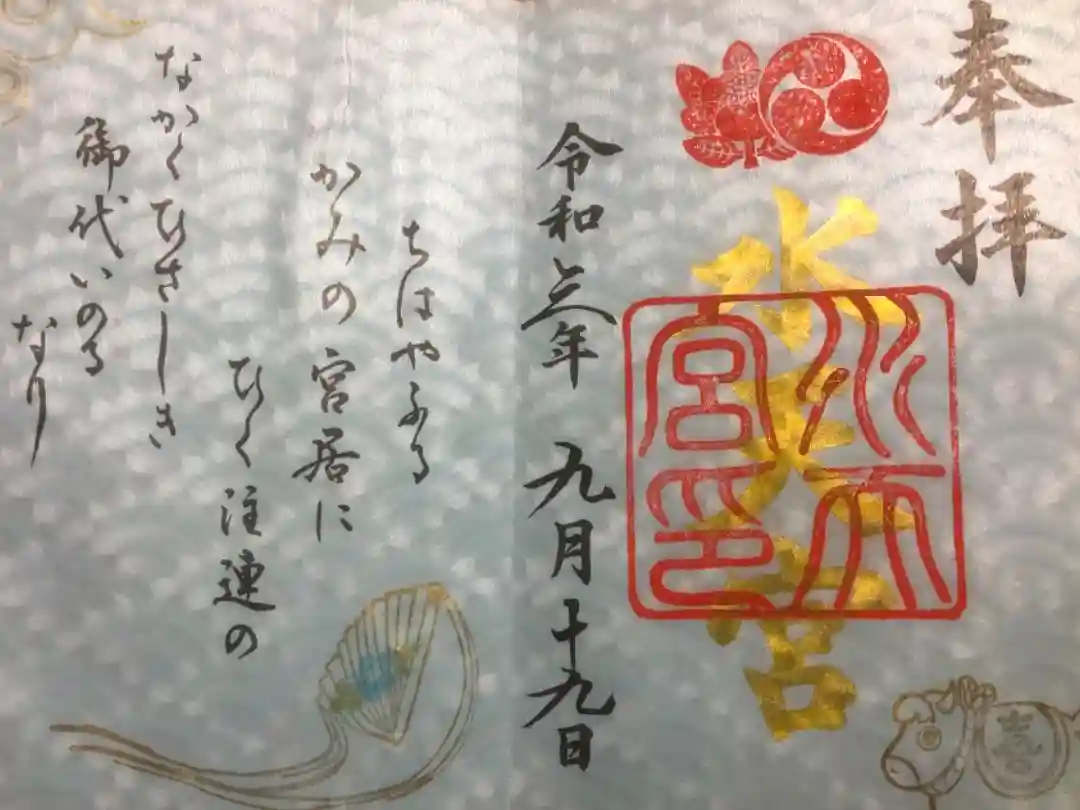 奉拝
水天宮
水天宮印
令和三年 九月十九日
ちはやふる
かみの宮居に
ひく注連の
なかくひさしき
御代いのる
なり
喜